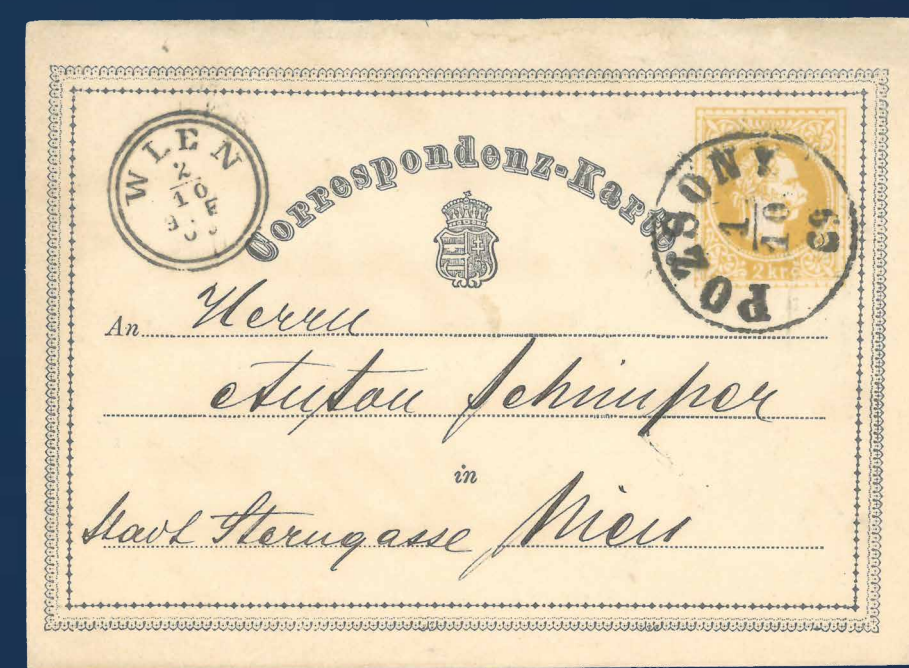 WIEN
2
10
Correspondenz-Karte
2 kr.
POZSONY
1
10
69
An Herrn
Anton Schimper
in
Stadt Sterngasse Wien